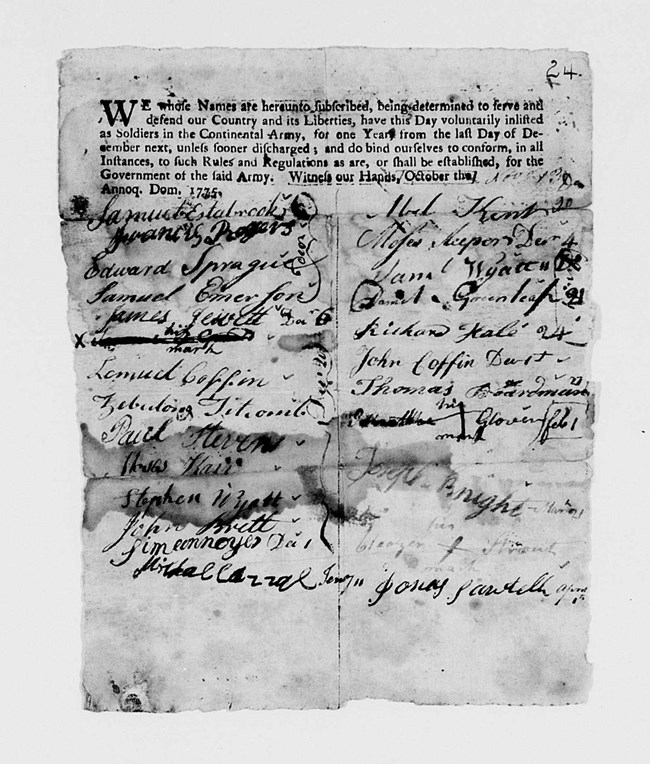 24.
WE whose Names are hereunto subscribed, being determined to serve and
defend our Country and its Liberties, have this Day voluntarily inlisted
as Soldiers in the Continental Army, for one Year from the last Day of De-
cember next, unless sooner discharged; and do bind ourselves to conform, in all
Instances, to such Rules and Regulations as are, or shall be established, for the
Government of the said Army. Witness our Hands, October the
Annoq. Dom. 1775.
Samuel Estabrook
Francis Rogers
Edward Sprague
Samuel Emerson
James Jewett Dec 6
X his
mark
Lemuel Coffin
Zebulong Titcomb
Paul Stevens
Moses
Stephen Wyatt
John Brett
Simeonnoyes De 1
Mickal Carral Jany 11
Abel Kent 20
Moses Decr 4
Saml Wyatt 11
Daniel Greenleaf 21
Richard Hale 24
John Coffin De 1t
Thomas Boardman
his
Glover feb 1
mark
Joseph Knight
his
Eleazer
mark
Jonas Sawtell